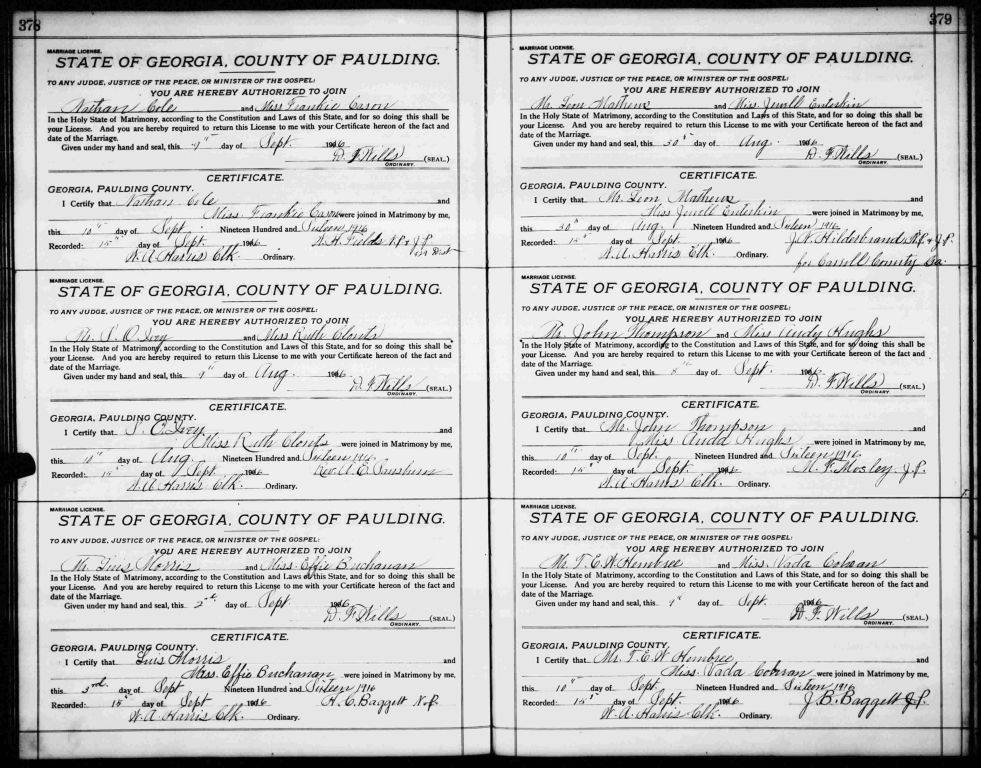 378
MARRIAGE LICENSE.
STATE OF GEORGIA, COUNTY OF PAULDING.
TO ANY JUDGE, JUSTICE OF THE PEACE, OR MINISTER OF THE GOSPEL:
YOU ARE HEREBY AUTHORIZED TO JOIN
Nathan Cole and Miss Frankie Cason
In the Holy State of Matrimony, according to the Constitution and Laws of this State, and for so doing this shall be
your License. And you are hereby required to return this License to me with your Certificate hereon of the fact and
date of the Marriage.
Given under my hand and seal, this day of Sept. 1916
D. F. Wills (SEAL.)
ORDINARY.
CERTIFICATE.
GEORGIA, PAULDING COUNTY.
I Certify that Nathan Cole and
Miss Frankie Cason were joined in Matrimony by me,
this 10" day of Sept. Nineteen Hundred and Sixteen 1916
Recorded: 15" day of Sept. 1916 N. P. & J. P.
W. A. Harris Clk. Ordinary.
MARRIAGE LICENSE.
STATE OF GEORGIA, COUNTY OF PAULDING.
TO ANY JUDGE, JUSTICE OF THE PEACE, OR MINISTER OF THE GOSPEL:
YOU ARE HEREBY AUTHORIZED TO JOIN
Mr. S. O. Ivey and Miss Ruth Clonts
In the Holy State of Matrimony, according to the Constitution and Laws of this State, and for so doing this shall be
your License. And you are hereby required to return this License to me with your Certificate hereon of the fact and
date of the Marriage.
Given under my hand and seal, this 9" day of Aug. 1916
D. F. Wills (SEAL.)
ORDINARY.
CERTIFICATE.
GEORGIA, PAULDING COUNTY.
I Certify that S. O. Ivey
Miss Ruth Clonts were joined in Matrimony by me,
this 10" day of Aug. Nineteen Hundred and Sixteen 1916
Recorded: 15" day of Sept. 1916 Rev. A. E.
W. A. Harris Clk. Ordinary.
MARRIAGE LICENSE.
STATE OF GEORGIA, COUNTY OF PAULDING.
TO ANY JUDGE, JUSTICE OF THE PEACE, OR MINISTER OF THE GOSPEL:
YOU ARE HEREBY AUTHORIZED TO JOIN
Mr. Morris and Miss Effie Buchanan
In the Holy State of Matrimony, according to the Constitution and Laws of this State, and for so doing this shall be
your License. And you are hereby required to return this License to me with your Certificate hereon of the fact and
date of the Marriage.
Given under my hand and seal, this 2" day of Sept. 1916
D. F. Wills (SEAL.)
ORDINARY.
CERTIFICATE.
GEORGIA, PAULDING COUNTY.
I Certify that Morris and
Miss Effie Buchanan were joined in Matrimony by me,
this 3rd day of Sept Nineteen Hundred and Sixteen 1916
Recorded: 15 day of Sept 1916 H. C. Baggett N. P.
W. A. Harris Clk. Ordinary.
379
MARRIAGE LICENSE.
STATE OF GEORGIA, COUNTY OF PAULDING.
TO ANY JUDGE, JUSTICE OF THE PEACE, OR MINISTER OF THE GOSPEL:
YOU ARE HEREBY AUTHORIZED TO JOIN
Mr. Leon Mathews and Miss Jewell Enterkin
In the Holy State of Matrimony, according to the Constitution and Laws of this State, and for so doing this shall be
your License. And you are hereby required to return this License to me with your Certificate hereon of the fact and
date of the Marriage.
Given under my hand and seal, this 30" day of Aug. 1916
D. F. Wills (SEAL.)
ORDINARY.
CERTIFICATE.
GEORGIA, PAULDING COUNTY.
I Certify that Mr. Leon Mathews and
Miss Jewell Enterkin were joined in Matrimony by me,
this 30 day of Aug. Nineteen Hundred and Sixteen 1916
Recorded: 15" day of Sept. 1916 J. N. Hilderbrand N. P. & J. P.
W. A. Harris Clk. Ordinary. for Carroll County Ga.
MARRIAGE LICENSE.
STATE OF GEORGIA, COUNTY OF PAULDING.
TO ANY JUDGE, JUSTICE OF THE PEACE, OR MINISTER OF THE GOSPEL:
YOU ARE HEREBY AUTHORIZED TO JOIN
Mr. John Thompson and Miss Hughs
In the Holy State of Matrimony, according to the Constitution and Laws of this State, and for so doing this shall be
your License. And you are hereby required to return this License to me with your Certificate hereon of the fact and
date of the Marriage.
Given under my hand and seal, this 8" day of Sept. 1916
D. F. Wills (SEAL.)
ORDINARY.
CERTIFICATE.
GEORGIA, PAULDING COUNTY.
I Certify that Mr. John Thompson and
Miss Auda Hughs were joined in Matrimony by me,
this 10" day of Sept. Nineteen Hundred and Sixteen 1916
Recorded: 15" day of Sept. 1916 M. F. Mosley J. P.
W. A. Harris Clk. Ordinary.
MARRIAGE LICENSE.
STATE OF GEORGIA, COUNTY OF PAULDING.
TO ANY JUDGE, JUSTICE OF THE PEACE, OR MINISTER OF THE GOSPEL:
YOU ARE HEREBY AUTHORIZED TO JOIN
Mr. T. E. W. Hembree and Miss Vada Cobran
In the Holy State of Matrimony, according to the Constitution and Laws of this State, and for so doing this shall be
your License. And you are hereby required to return this License to me with your Certificate hereon of the fact and
date of the Marriage.
Given under my hand and seal, this 9" day of Sept. 1916
D. F. Wills (SEAL.)
ORDINARY.
CERTIFICATE.
GEORGIA, PAULDING COUNTY.
I Certify that Mr. T. E. W Hembree and
Miss Vada Cobran were joined in Matrimony by me,
this 10" day of Sept. Nineteen Hundred and Sixteen 1916
Recorded: 15" day of Sept. 1916 J. B. Baggett J. P.
W. A. Harris Clk. Ordinary.